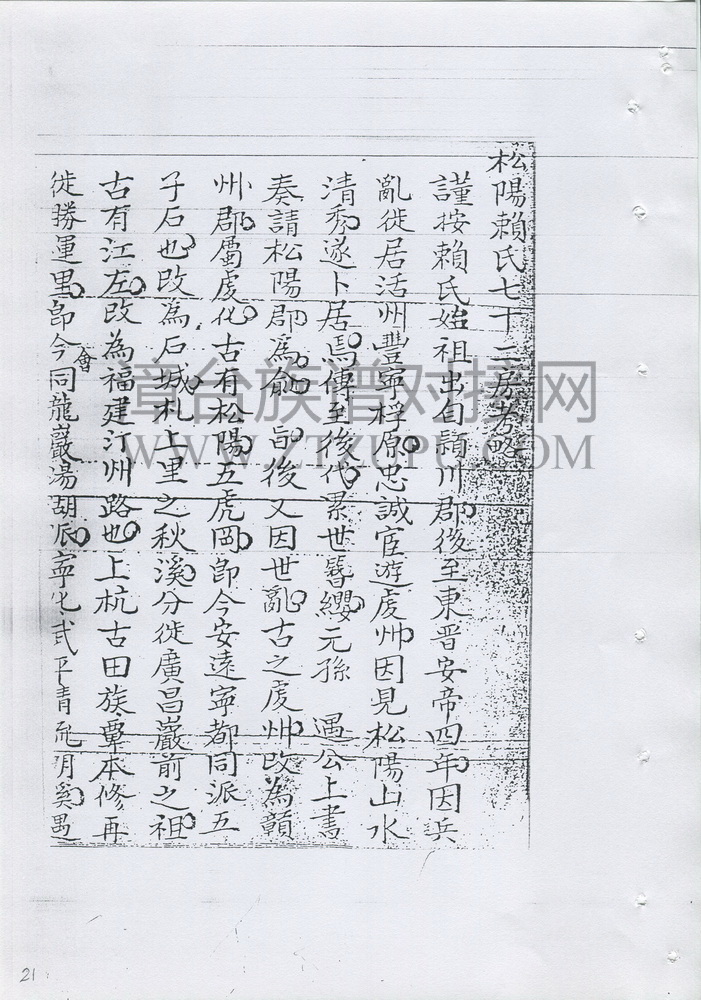 松陽賴氏七十二房考略
謹按賴氏始祖出自潁川郡後至東晉安帝四年因兵
亂徙居活州豐寧桴原忠誠宦遊虔州因見松陽山水
清秀遂卜居焉傳至後代累世簪纓元孫 遇公上書
奏請松陽郡爲俞 旨後又因世亂古之虔州改為贛
州郡屬虔化古有松陽五虎岡即今安遠寧都同派五
子石也改為石城札上里之秋溪分徙廣昌巖前之祖
古有江左改為福建汀州路也上杭古田族章本修再
徙勝運里即今會同龍巖湯胡派寧化武平青流明溪
章台族谱对接网
WWW.ZTZUPU.COM
21